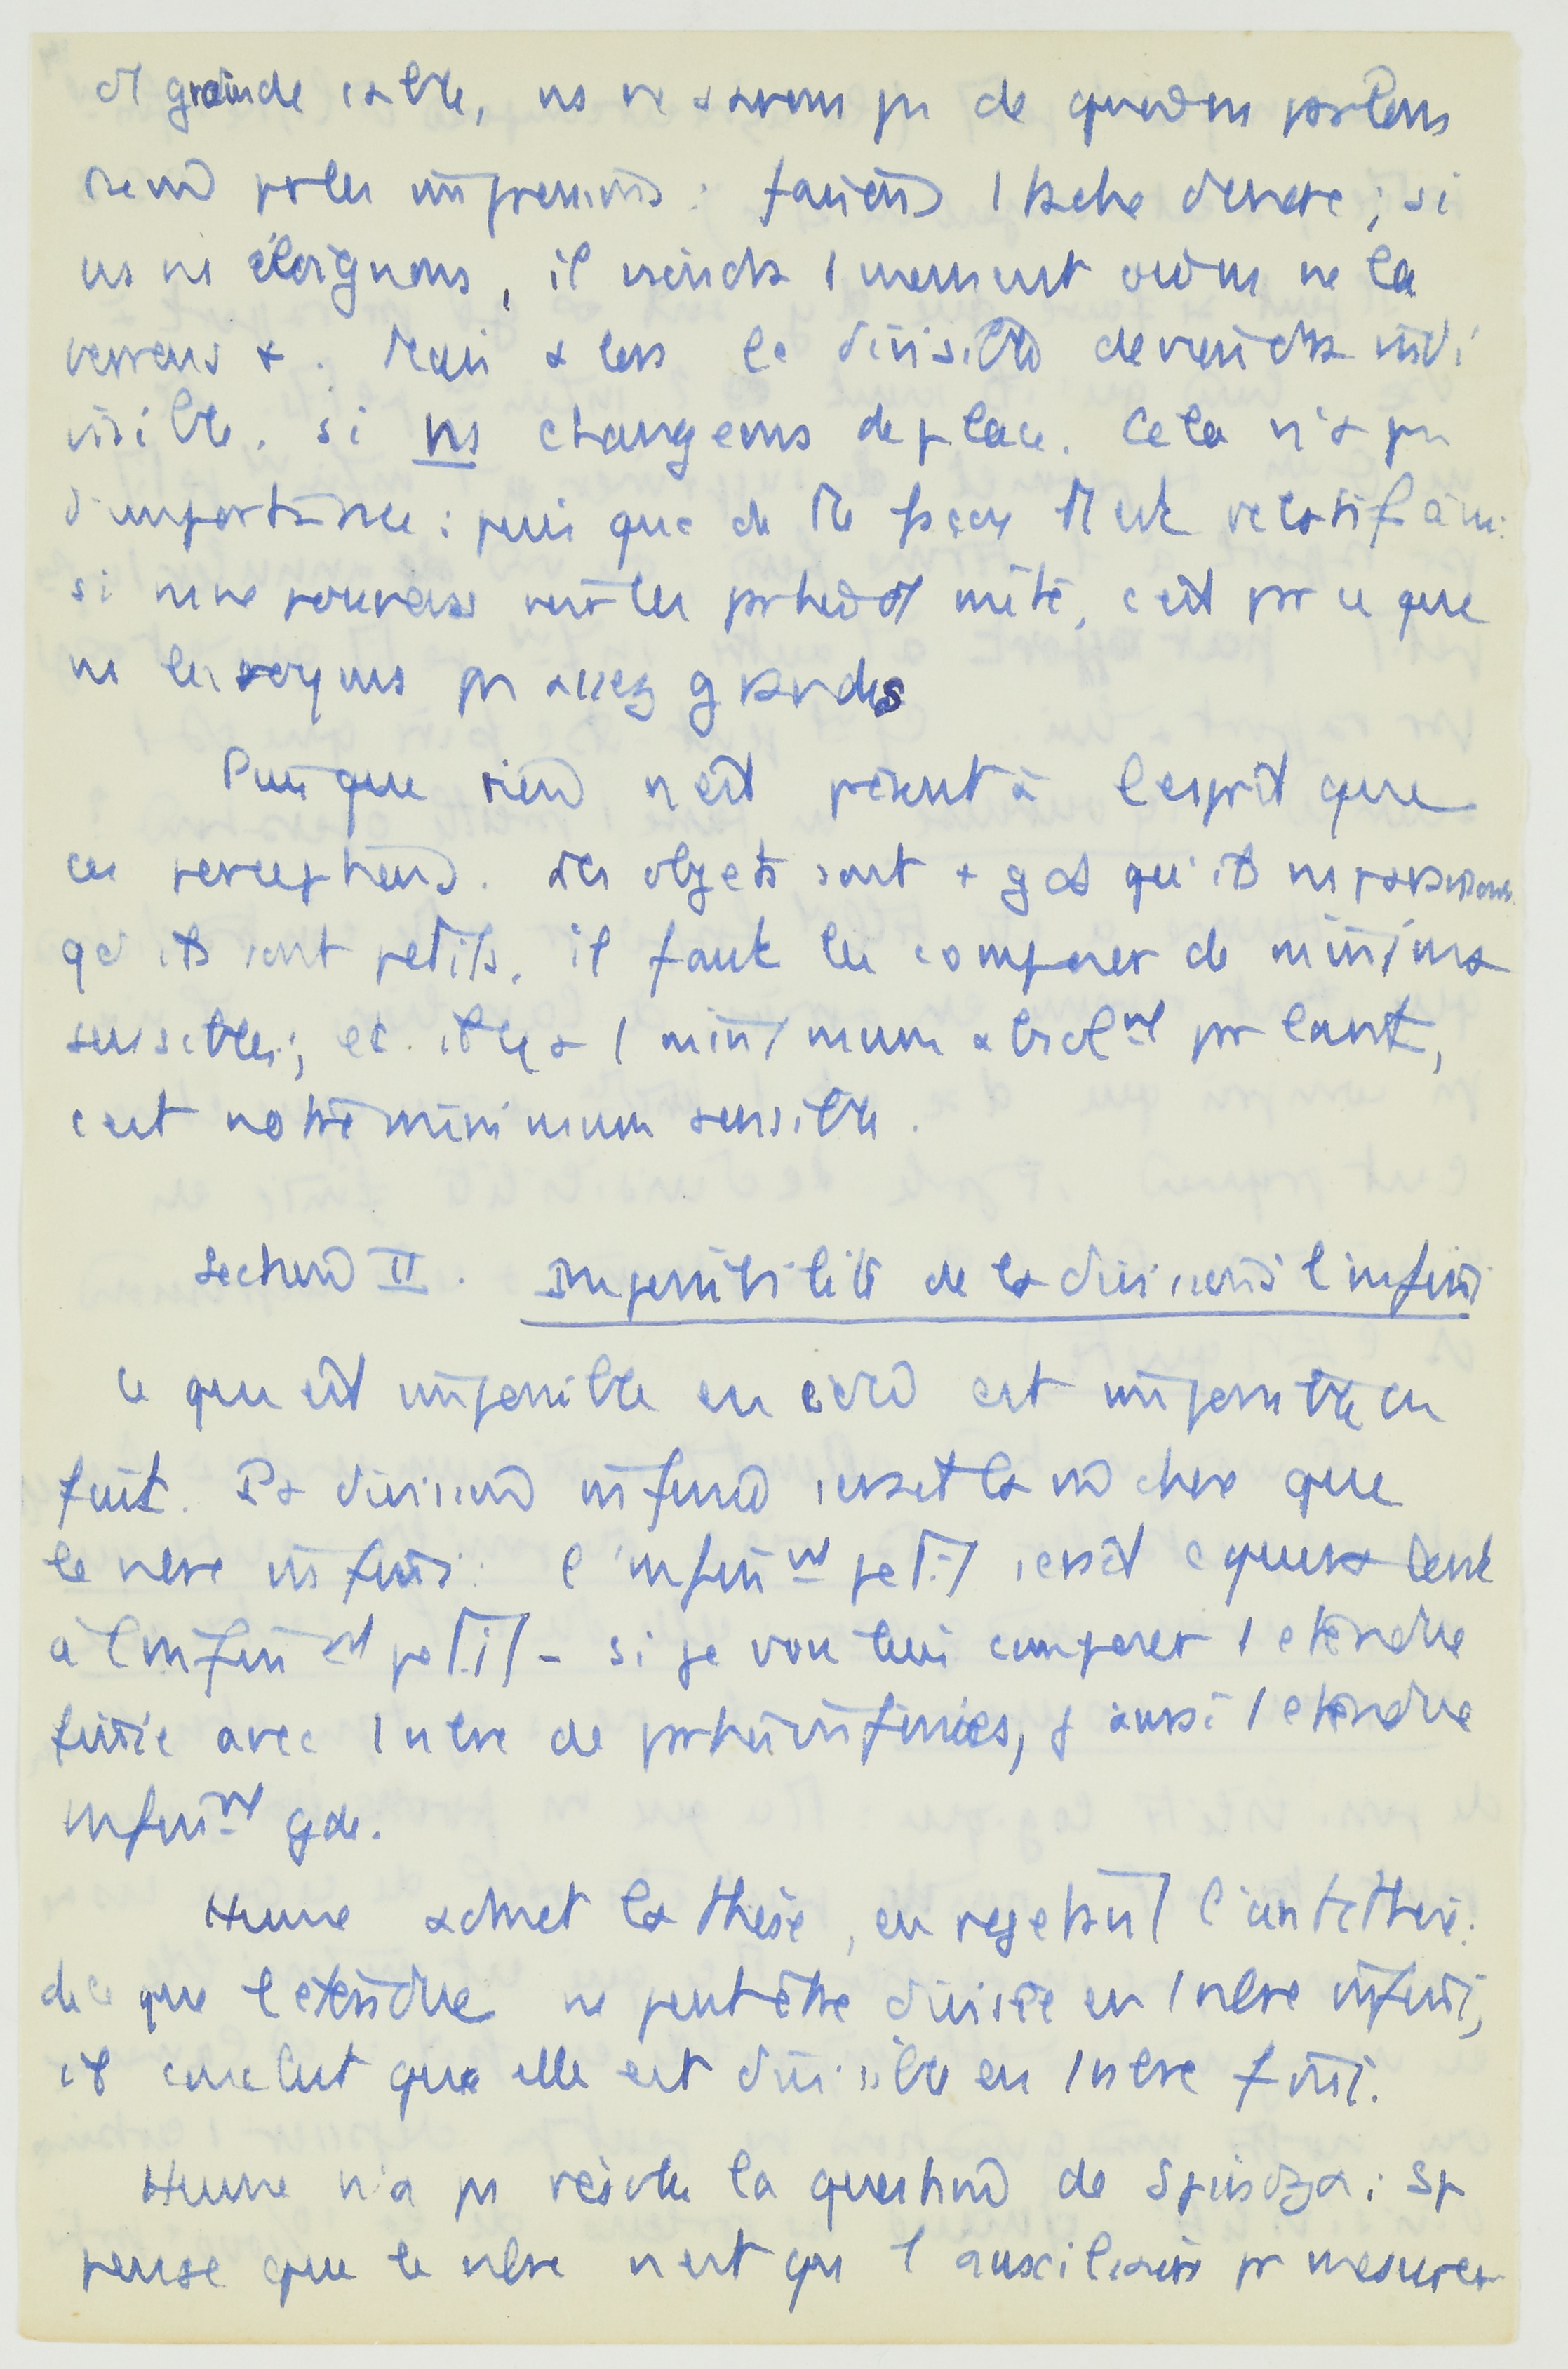 et grain de sable, ns ne savons pas de quoi ns parlons
sinon par les impressions : faisons 1 tache d'encre ; si
ns ns éloignons, il viendra 1 moment où ns ne la
verrons +. Mais alors la division deviendra indi
visible. si ns changeons de place. Cela n'a pas
d'importance : puis que de tte façon tt est relatif à ns
si ns ne pouvons voir les parties st mite, c'est par ce que
ns les voyons pas assez grandes
Puis que rien n'est présent à l'esprit que
ces perceptions. les objets sont + gds qu'ils ns paraissent
qd ils sont petits. il faut les composer de minima
sensibles ; et s'il y a 1 minimum absolmt parlant,
c'est notre minimum sensible.
Section II. Impossibilité de la division à l'infini
ce qui est impossible en idée est impossible en
fait. La division infinie serait la m chose que
le nbre infini : l'infinimt petit serait équivalent
à l'infinimt petit - si je voulais comparer 1 étendue
finie avec 1 nbre de parties infinies, & aussi 1 étendue
infinimt gde.
Hume admet la thèse, en rejetant l'antithèse :
de ce que l'étendue ne peut être divisée en 1 nbre infini,
il conclut que elle est divisible en 1 nbre fini.
Hume n'a pas résolu la question de Spinoza : Sp
pense que le nbre n'est qu'1 auxiliaire pr mesurer